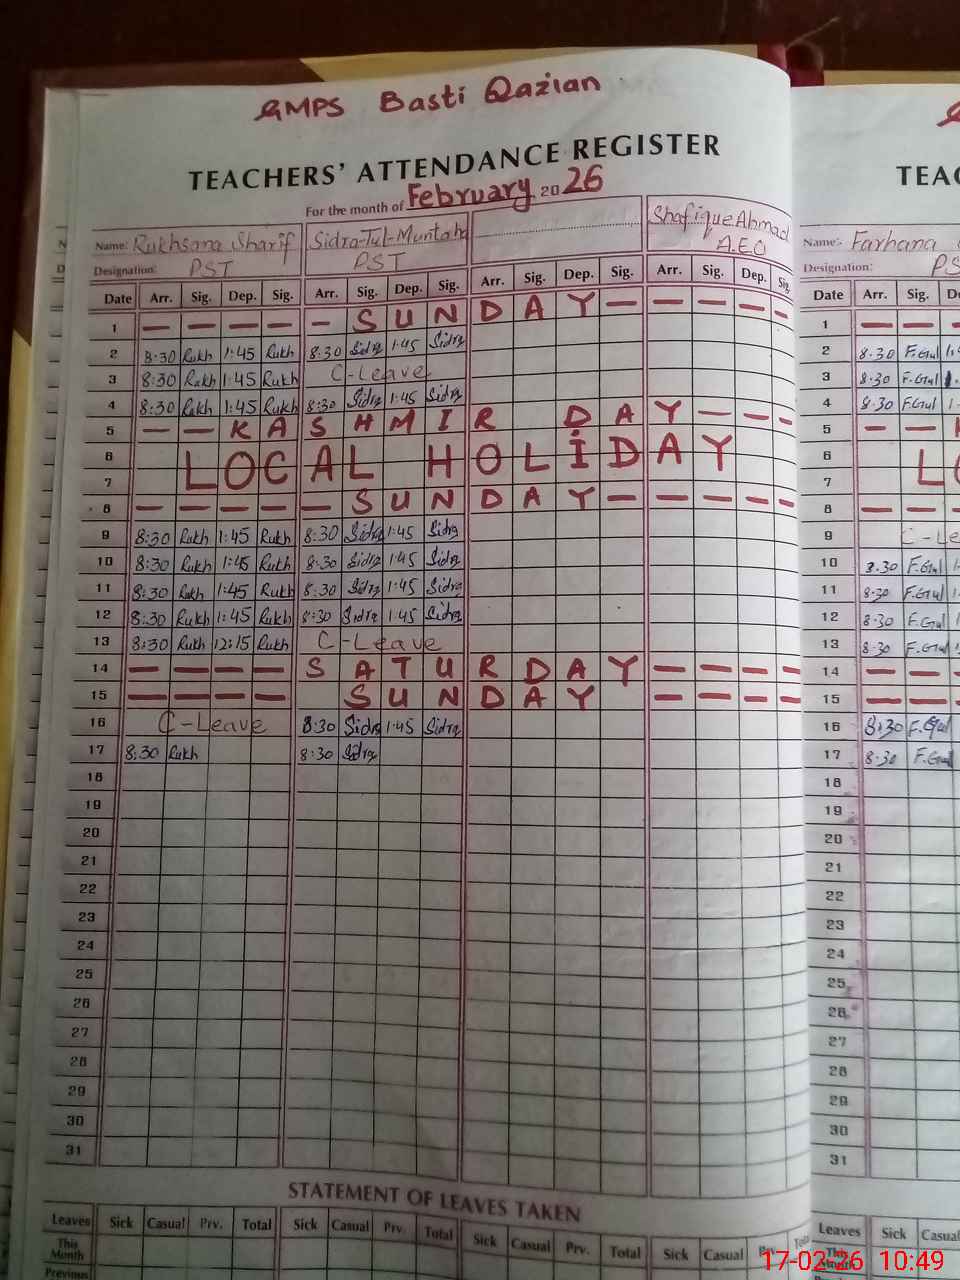 GMPS Basti Qazian
TEACHERS' ATTENDANCE REGISTER
For the month of February 2026
Name: Rukhsana Sharif Sidra-Tul-Muntaha Shafique Ahmad
Designation: PST PST A.E.O
Date Arr. Sig. Dep. Sig. Arr. Sig. Dep. Sig. Arr. Sig. Dep. Sig. Arr. Sig. Dep. Sig.
1 — — — — — S U N D A Y — — — — —
2 8:30 Rukh 1:45 Rukh 8:30 Sidra 1:45 Sidra
3 8:30 Rukh 1:45 Rukh C-Leave
4 8:30 Rukh 1:45 Rukh 8:30 Sidra 1:45 Sidra
5 — — K A S H M I R D A Y — — —
6 LOCAL HOLIDAY
7
8 — — — — — S U N D A Y — — — — —
9 8:30 Rukh 1:45 Rukh 8:30 Sidra 1:45 Sidra
10 8:30 Rukh 1:45 Rukh 8:30 Sidra 1:45 Sidra
11 8:30 Rukh 1:45 Rukh 8:30 Sidra 1:45 Sidra
12 8:30 Rukh 1:45 Rukh 8:30 Sidra 1:45 Sidra
13 8:30 Rukh 12:15 Rukh C-Leave
14 — — — — S A T U R D A Y — — — —
15 — — — — S U N D A Y — — — —
16 C-Leave 8:30 Sidra 1:45 Sidra
17 8:30 Rukh 8:30 Sidra
18
19
20
21
22
23
24
25
26
27
28
29
30
31
STATEMENT OF LEAVES TAKEN
Leaves Sick Casual Prv. Total Sick Casual Prv. Total Sick Casual Prv. Total Sick Casual
This Month
Previous
TEAC
Name: Farhana
Designation: PS
Date Arr. Sig. D
1 — — —
2 8:30 F.Gul
3 8:30 F.Gul
4 8:30 F.Gul
5 — —
6 LO
7
8 — — —
9 C-Le
10 8:30 F.Gul
11 8:30 F.Gul
12 8:30 F.Gul
13 8:30 F.Gul
14 — — —
15 — — —
16 8:30 F.Gul
17 8:30 F.Gul
18
19
20
21
22
23
24
25
26
27
28
29
30
31
Leaves Sick Casual
This Month
17-02-26 10:49